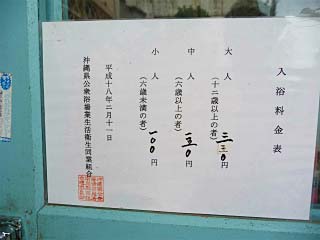 入浴料金表
大人
(十二歳以上の者) 三三〇円
中人
(六歳以上の者) 一五〇円
小人
(六歳未満の者) 一〇〇円
平成十八年二月十一日
沖縄県公衆浴場業生活衛生同業組合